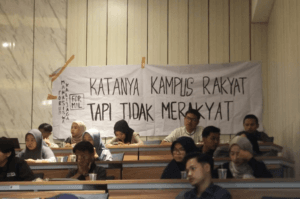 KATANYA KAMPUS RAKYAT
TAPI TIDAK MERAKYAT